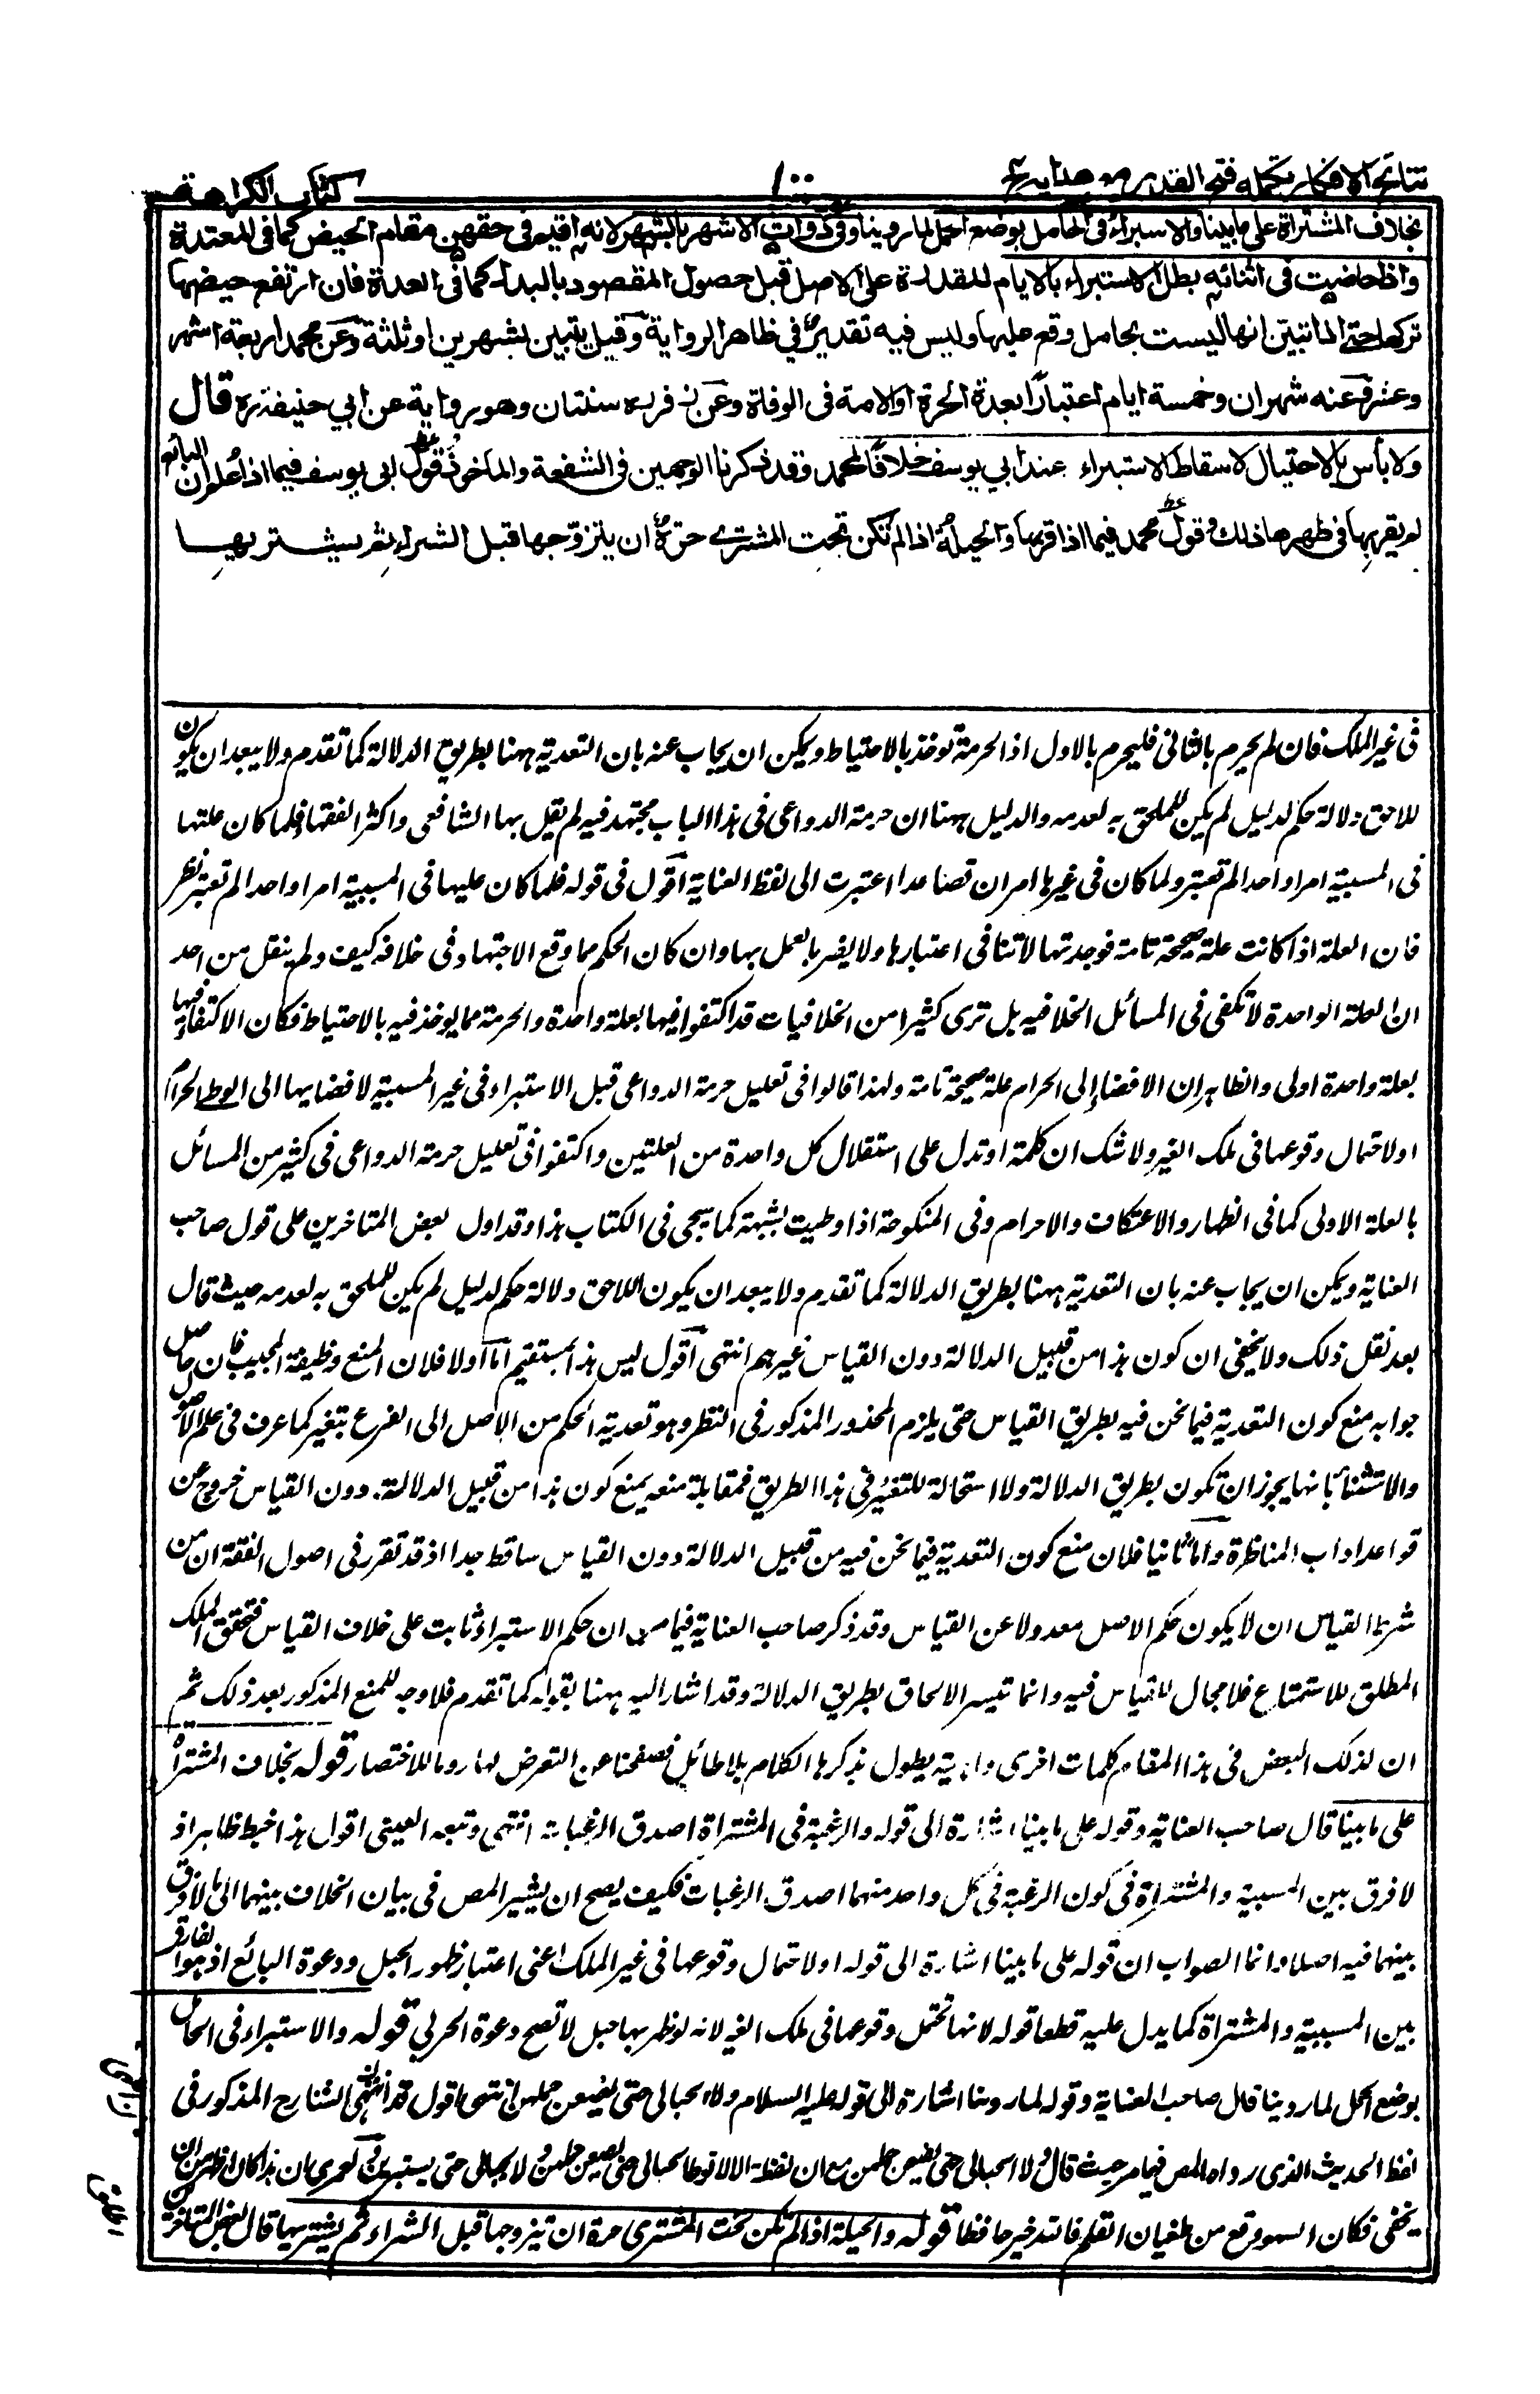 نتائج الافكار تكمله فتح القدير مع هدايه ج ٤
١٠٠
كتاب الكراهية
بخلاف المشتراة على ما بينا والاستبراء فى الحامل بوضع الحمل لما روينا وفى ذوات الاشهر بالشهر لانه اقيم فى حقهن مقام الحيض كما فى المعتدة
واذا حاضت فى اثنائه بطل الاستبراء بالايام للقدرة على الاصل قبل حصول المقصود بالبدل كما فى العدة فان ارتفع حيضها
تركها حتى اذا تبين انها ليست بحامل وقع عليها وليس فيه تقدير فى ظاهر الرواية وقيل يتبين بشهرين او ثلثة وعن محمد اربعة اشهر
وعشر وعنه شهران وخمسة ايام اعتبارا بعدة الحرة او الامة فى الوفاة وعن زفر ره سنتان وهو رواية عن ابي حنيفة ره قال
ولا بأس بالاحتيال لاسقاط الاستبراء عند ابي يوسف خلافا لمحمد وقد ذكرنا الوجهين فى الشفعة والماخوذ قول ابى يوسف فيما اذا علم ان البائع
لم يقربها فى طهرها ذلك وقول محمد فيما اذا قربها والحيلة اذا لم تكن تحت المشترى حرة ان يتزوجها قبل الشراء ثم يشتريها
فى غير الملك فان لم يحرم بالثانى فليحرم بالاول اذ الحرمة توخذ بالاحتياط ويمكن ان يجاب عنه بان التعدية ههنا بطريق الدلالة كما تقدم ولا يبعد ان يكون
للاحق دلالة حكم لدليل لم يكن للملحق به لعدمه والدليل ههنا ان حرمة الدواعى فى هذا الباب مجتهد فيه لم يقل بها الشافعى واكثر الفقهاء فلما كان علتها
فى المسبية امرا واحدا لم تعتبر ولما كان فى غيرها امران تصاعدا اعتبرت الى لفظ العناية اقول فى قوله فلما كان عليها فى المسبية امرا واحدا لم تعتبر نظر
فان العلة اذا كانت علة صحيحة تامة فوحدتها لا تنافى اعتبارها ولا يضر بالعمل بها وان كان الحكم مما وقع الاجتهاد فى خلافه كيف ولم ينقل من احد
ان العلة الواحدة لا تكفى فى المسائل الخلافيه بل ترى كثيرا من الخلافيات قد اكتفوا فيها بعلة واحدة والحرمة مما يوخذ فيه بالاحتياط فكان الاكتفاء فيها
بعلة واحدة اولى والظاهر ان الافضاء إلى الحرام علة صحيحة تامة ولهذا قالوا فى تعليل حرمة الدواعى قبل الاستبراء فى غير المسبية لافضايها الى الوطى الحرام
او لاحتمال وقوعها فى ملك الغير ولا شك ان كلمة او تدل على استقلال كل واحدة من العلتين واكتفوا فى تعليل حرمة الدواعى فى كثير من المسائل
بالعلة الاولى كما فى الظهار والاعتكاف والاحرام وفى المنكوحة اذا وطيت بشبهة كما سيجى فى الكتاب هذا وقد اول بعض المتاخرين على قول صاحب
العناية ويمكن ان يجاب عنه بان التعدية ههنا بطريق الدلالة كما تقدم ولا يبعد ان يكون اللاحق دلالة حكم لدليل لم يكن للملحق به لعدمه حيث قال
بعد نقل ذلك ولا يخفى ان كون هذا من قبيل الدلالة دون القياس غير مهم انتهى اقول ليس هذا بمستقيم اما اولا فلان المنع وظيفة المجيب فان حاصل
جوابه منع كون التعدية فيما نحن فيه بطريق القياس حتى يلزم المحذور المذكور فى النظر وهو تعدية الحكم من الاصل الى الفرع بتغير كما عرف فى علم الاصول
والاستثناء بانها يجوز ان تكون بطريق الدلالة ولا استحالة للتغير فى هذا الطريق فمقابلة منعه بمنع كون هذا من قبيل الدلالة دون القياس خروج عن
قواعد اداب المناظرة واما ثانيا فلان منع كون التعدية فيما نحن فيه من قبيل الدلالة دون القياس ساقط جدا اذ قد تقرر فى اصول الفقه ان من
شرط القياس ان لا يكون حكم الاصل معدولا عن القياس وقد ذكر صاحب العناية فيما مر ان حكم الاستبراء ثابت على خلاف القياس فتحقق الملك
المطلق للاستمتاع فلا مجال للقياس فيه وانما تيسر الالحاق بطريق الدلالة وقد اشار اليه ههنا بقوله كما تقدم فلا وجه للمنع المذكور بعد ذلك ثم
ان لذلك البعض فى هذا المقام كلمات اخرى واهية يطول بذكرها الكلام بلا طائل فصفحنا عن التعرض لها روما للاختصار قوله بخلاف المشتراة
على ما بينا قال صاحب العناية وقوله على ما بينا اشارة الى قوله والرغبة فى المشتراة اصدق الرغبات انتهى وتبعه العينى اقول هذا خبط ظاهر اذ
لا فرق بين المسبية والمشتراة فى كون الرغبة فى كل واحد منهما اصدق الرغبات فكيف يصح ان يشير المص فى بيان الخلاف بينهما الى ما لا فرق
بينهما فيه اصلا وانما الصواب ان قوله على ما بينا اشارة الى قوله او لاحتمال وقوعها فى غير الملك اعنى اعتبار ظهور الحبل ودعوة البائع اذ هو الفارق
بين المسبية والمشتراة كما يدل عليه قطعا قوله لانها تحتمل وقوعها فى ملك الغير لانه لو ظهر بها حبل لا تصح دعوة الحربي قوله والاستبراء فى الحامل
بوضع الحمل لما روينا قال صاحب العناية وقوله لما روينا اشارة الى قوله عليه السلام ولا الحبالى حتى يضعن حملهن انتهى اقول قد الشارح المذكور فى
لفظ الحديث الذى رواه المص فيما مر حيث قال ولا الحبالى حتى يضعن حملهن مع ان لفظه الا لا توطا الحبالى حتى يضعن حملهن ولا الحبالى حتى يستبرين ولعمرى ان هذا كان اظهر من ان
يخفى فكان السهو وقع من طغيان القلم فالله خير حافظا قوله والحيلة اذا لم تكن تحت المشترى حرة ان يتزوجها قبل الشراء ثم يشتريها قال بعض المتاخرين